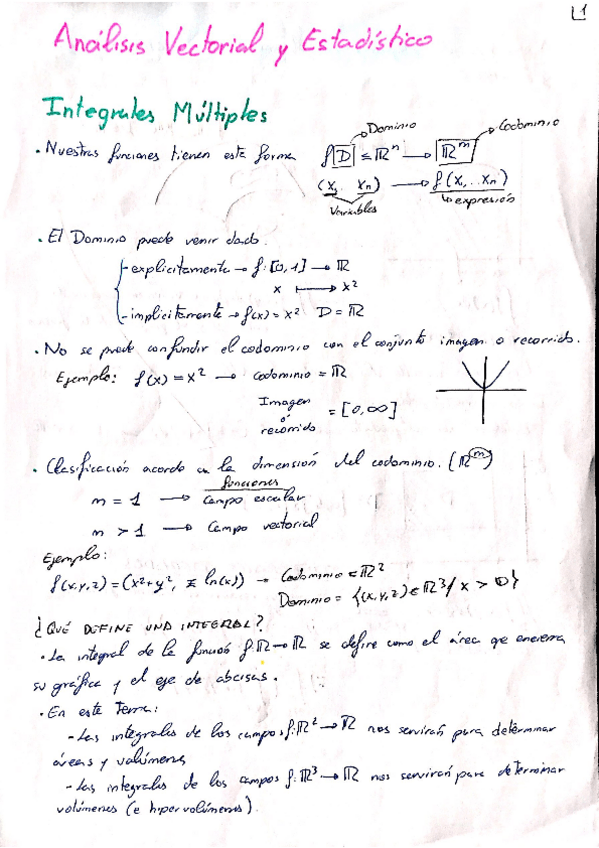 1
Análisis Vectorial y Estadístico
Integrales Múltiples
Dominio Codominio
. Nuestras funciones tienen esta forma f: D ⊆ ℝⁿ → ℝᵐ
(x, xₙ) → f(x, ... xₙ)
Variables ↳ expresión
. El Dominio puede venir dado.
- explicitamente → f: [0,1] → ℝ
x ⟼ x²
- implicitamente → f(x) = x² D = ℝ
. No se puede confundir el codominio con el conjunto imagen o recorrido.
Ejemplo: f(x) = x² → codominio = ℝ
Imagen
ó
recorrido = [0,∞]
. Clasificación acorde a la dimensión del codominio. (ℝᵐ)
funciones
m = 1 → Campo escalar
m > 1 → Campo vectorial
Ejemplo:
f(x,y,z) = (x²+y², z ln(x)) → Codominio ∈ ℝ²
Dominio = {(x,y,z) ∈ ℝ³ / x > 0}
¿QUÉ DEFINE UNA INTEGRAL?
. La integral de la función f: ℝ → ℝ se define como el área que encierra
su gráfica y el eje de abcisas.
. En este Tema:
- Las integrales de los campos f: ℝ² → ℝ nos servirán para determinar
áreas y volúmenes
- Las integrales de los campos f: ℝ³ → ℝ nos servirán para determinar
volúmenes (e hipervolúmenes).